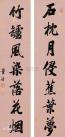 石枕月侵蕉葉夢
竹罏風染落花烟